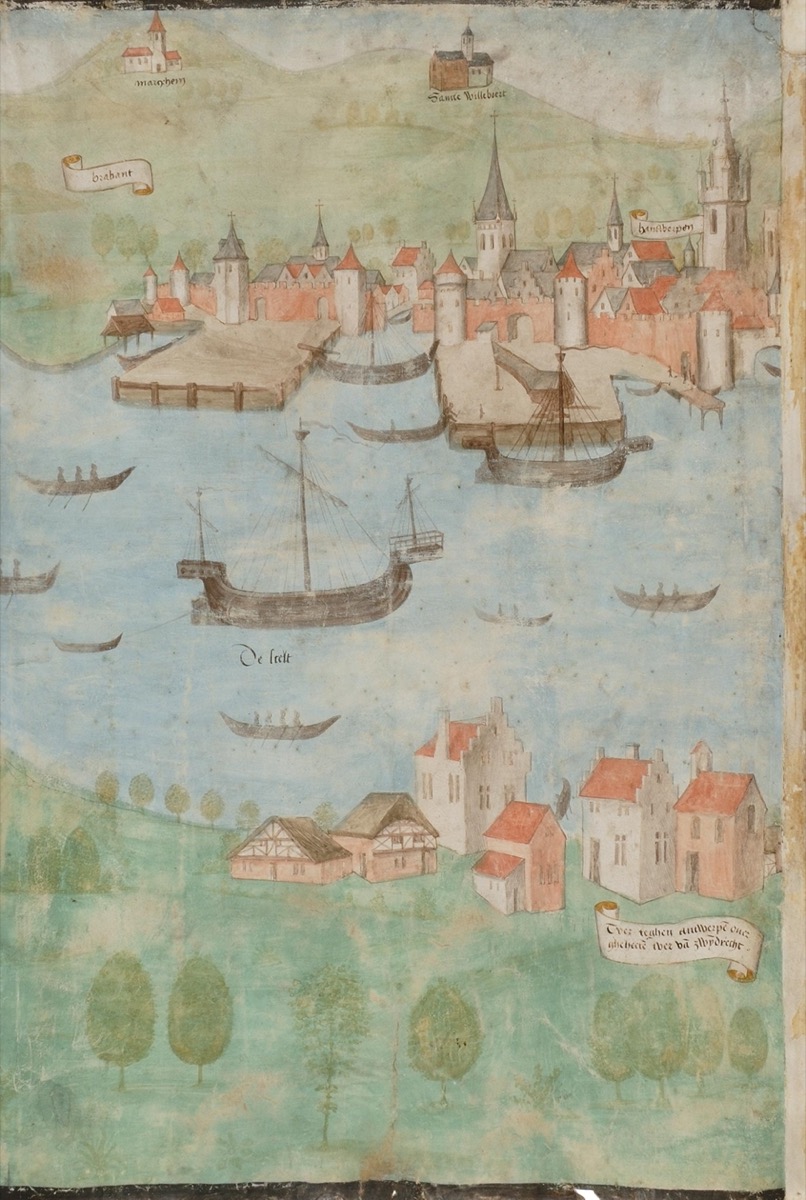 marxhem
Sancte Willeboert
brabant
hantwerpen
De scelt
Tver teghen andwerpē
ghehetē tver vā zwydrecht